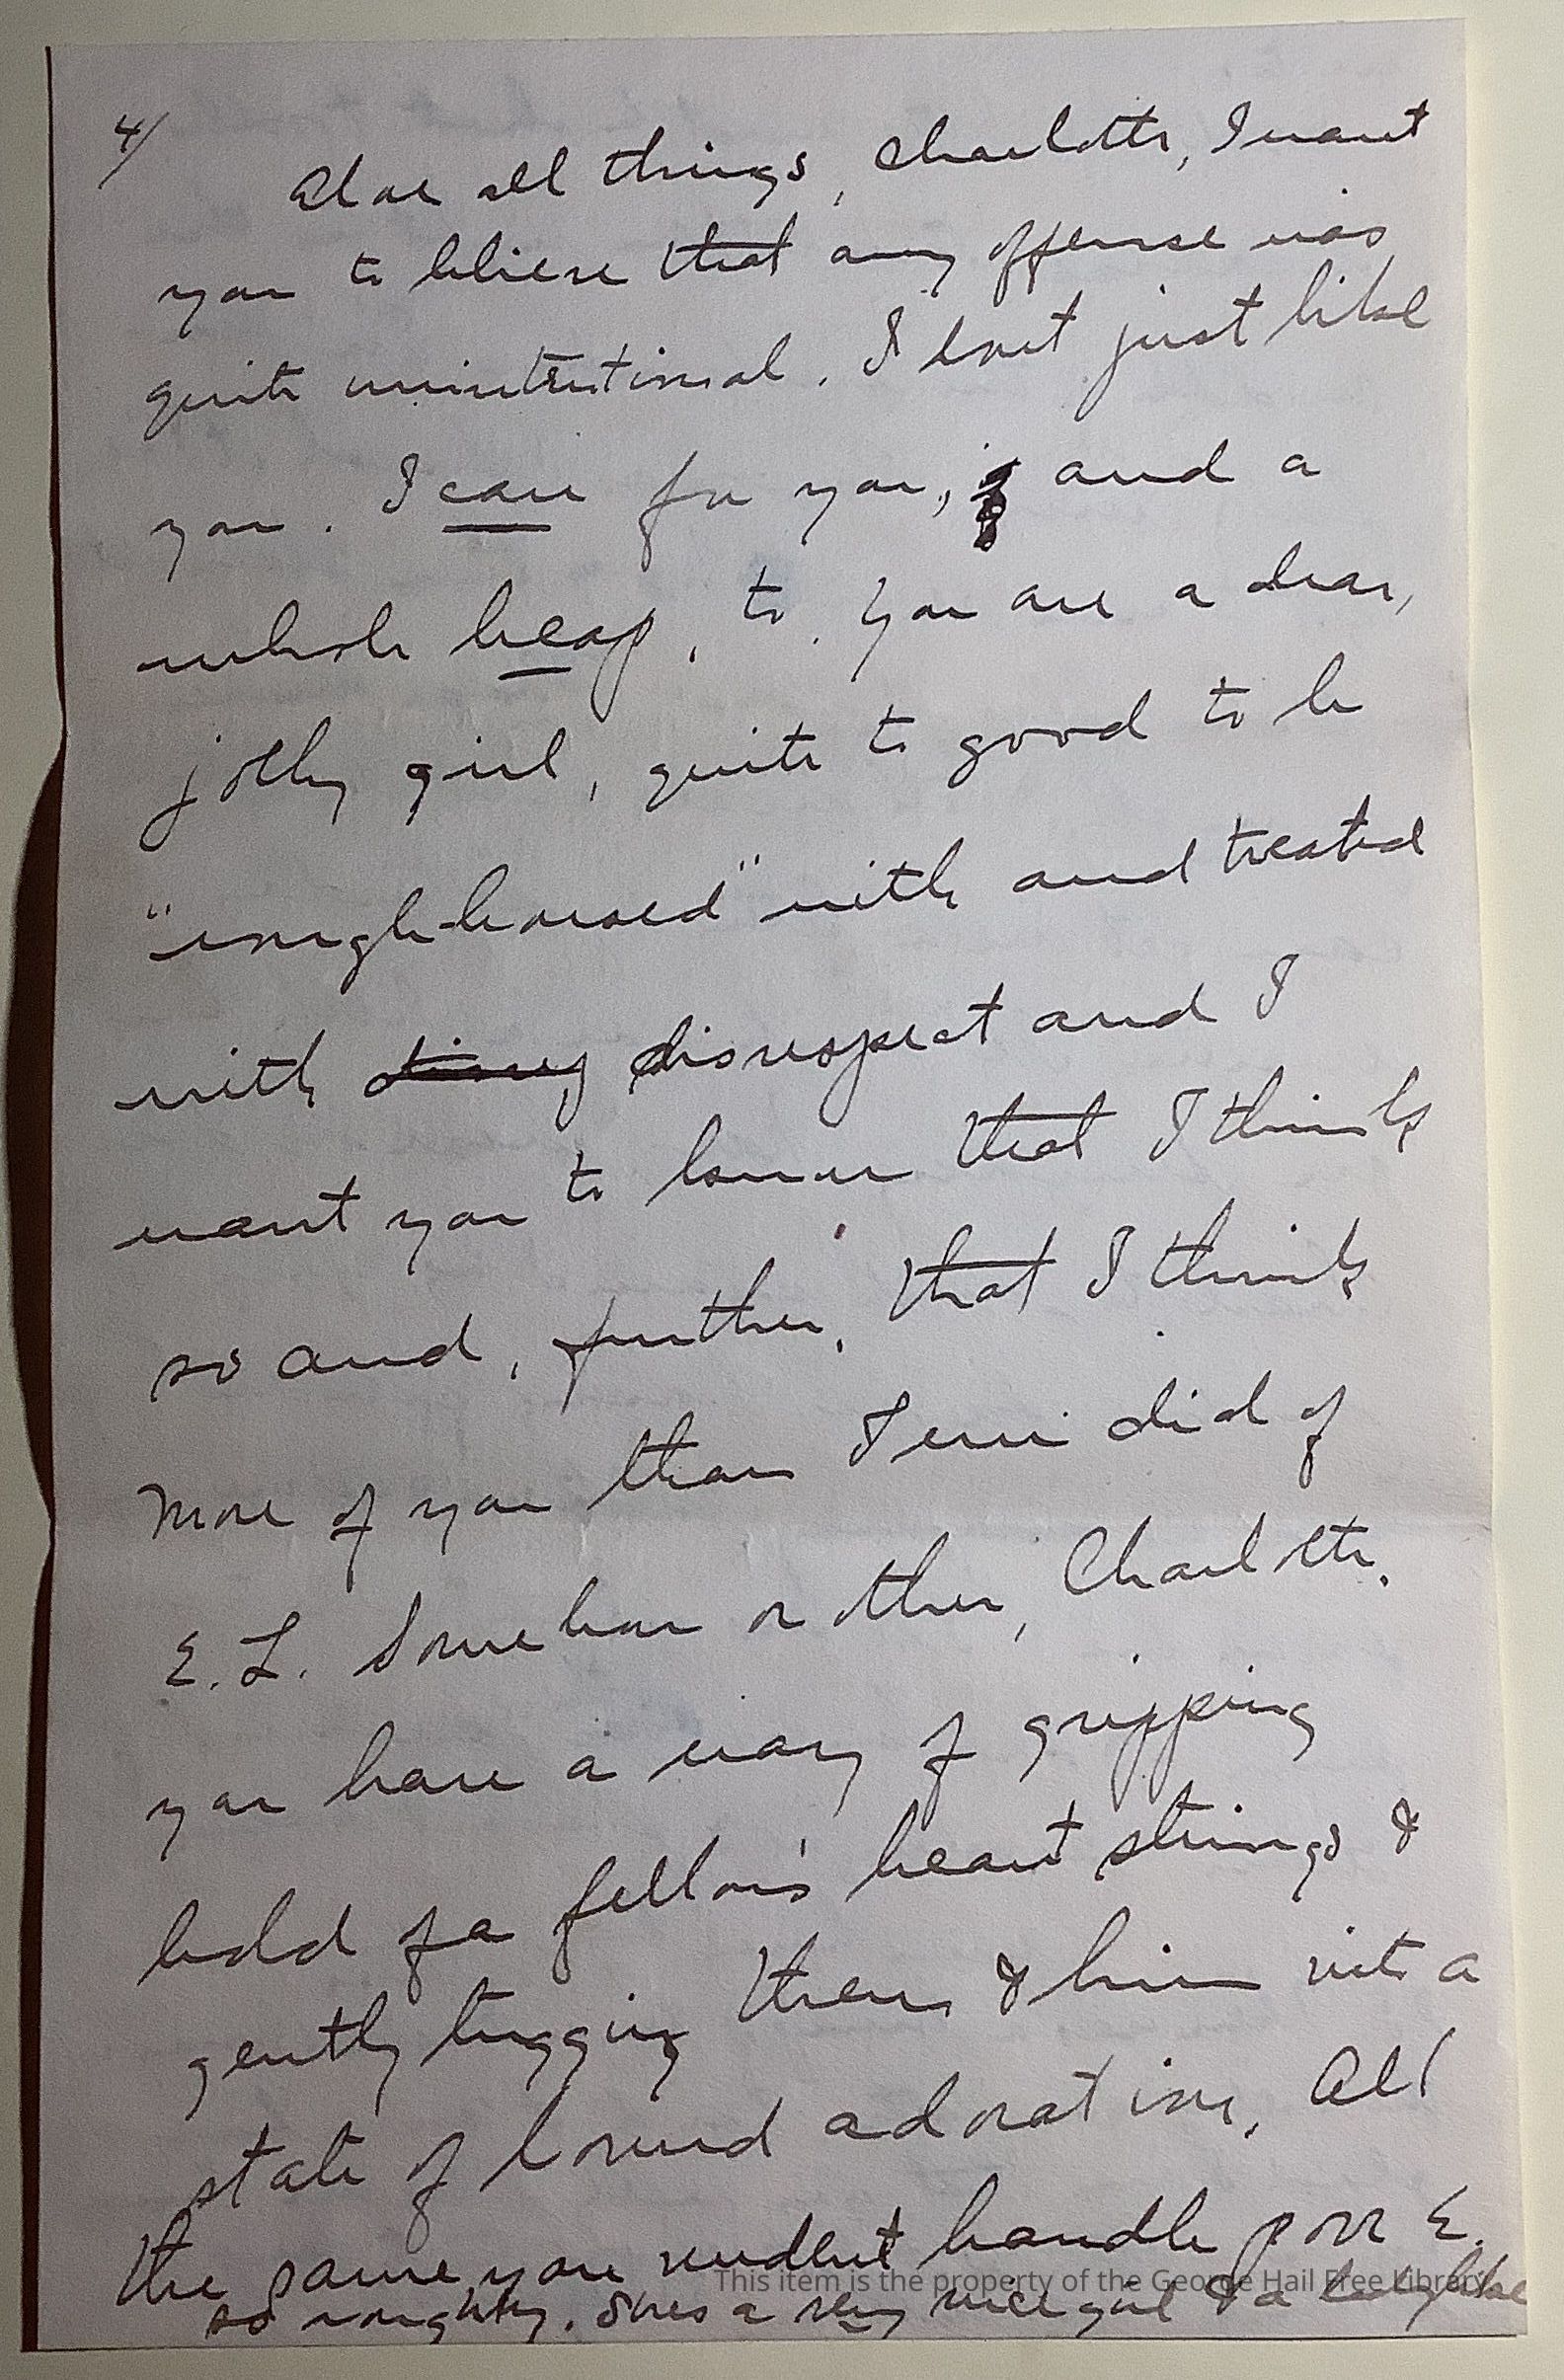 4/
Above all things, Charlotte, I want
you to believe that any offense was
quite unintentional. I don't just like
you. I care for you, and a
whole heap, to. You are a dear,
jolly girl, quite to good to be
"rough-housed" with and treated
with disresp disrespect and I
want you to know that I think
so and, further, that I think
more of you than I ever did of
E. L. Somehow or other, Charlotte,
you have a way of gripping
hold of a fellow's heart strings &
gently tugging them & him into a
state of adoration. All
the same you needn't handle poor E.
so roughly. She's a very nice girl & a
This item is the property of the George Hail Free Library.